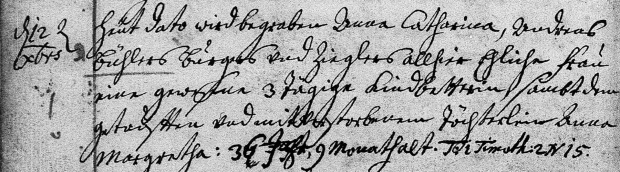 d. 12 Xbris
Heut dato wird begraben Anna Catharina, Andreas
Bühlers Burgers und Zieglers allhier Ehliche Frau
eine gewesene 3 Tägige Kindbetterin sambt dem
getaufften und mitverstorbenem Töchterlein Anna
Margretha: 36 Jahr, 9 Monath alt. T. 1 Timoth: 2 V 15.